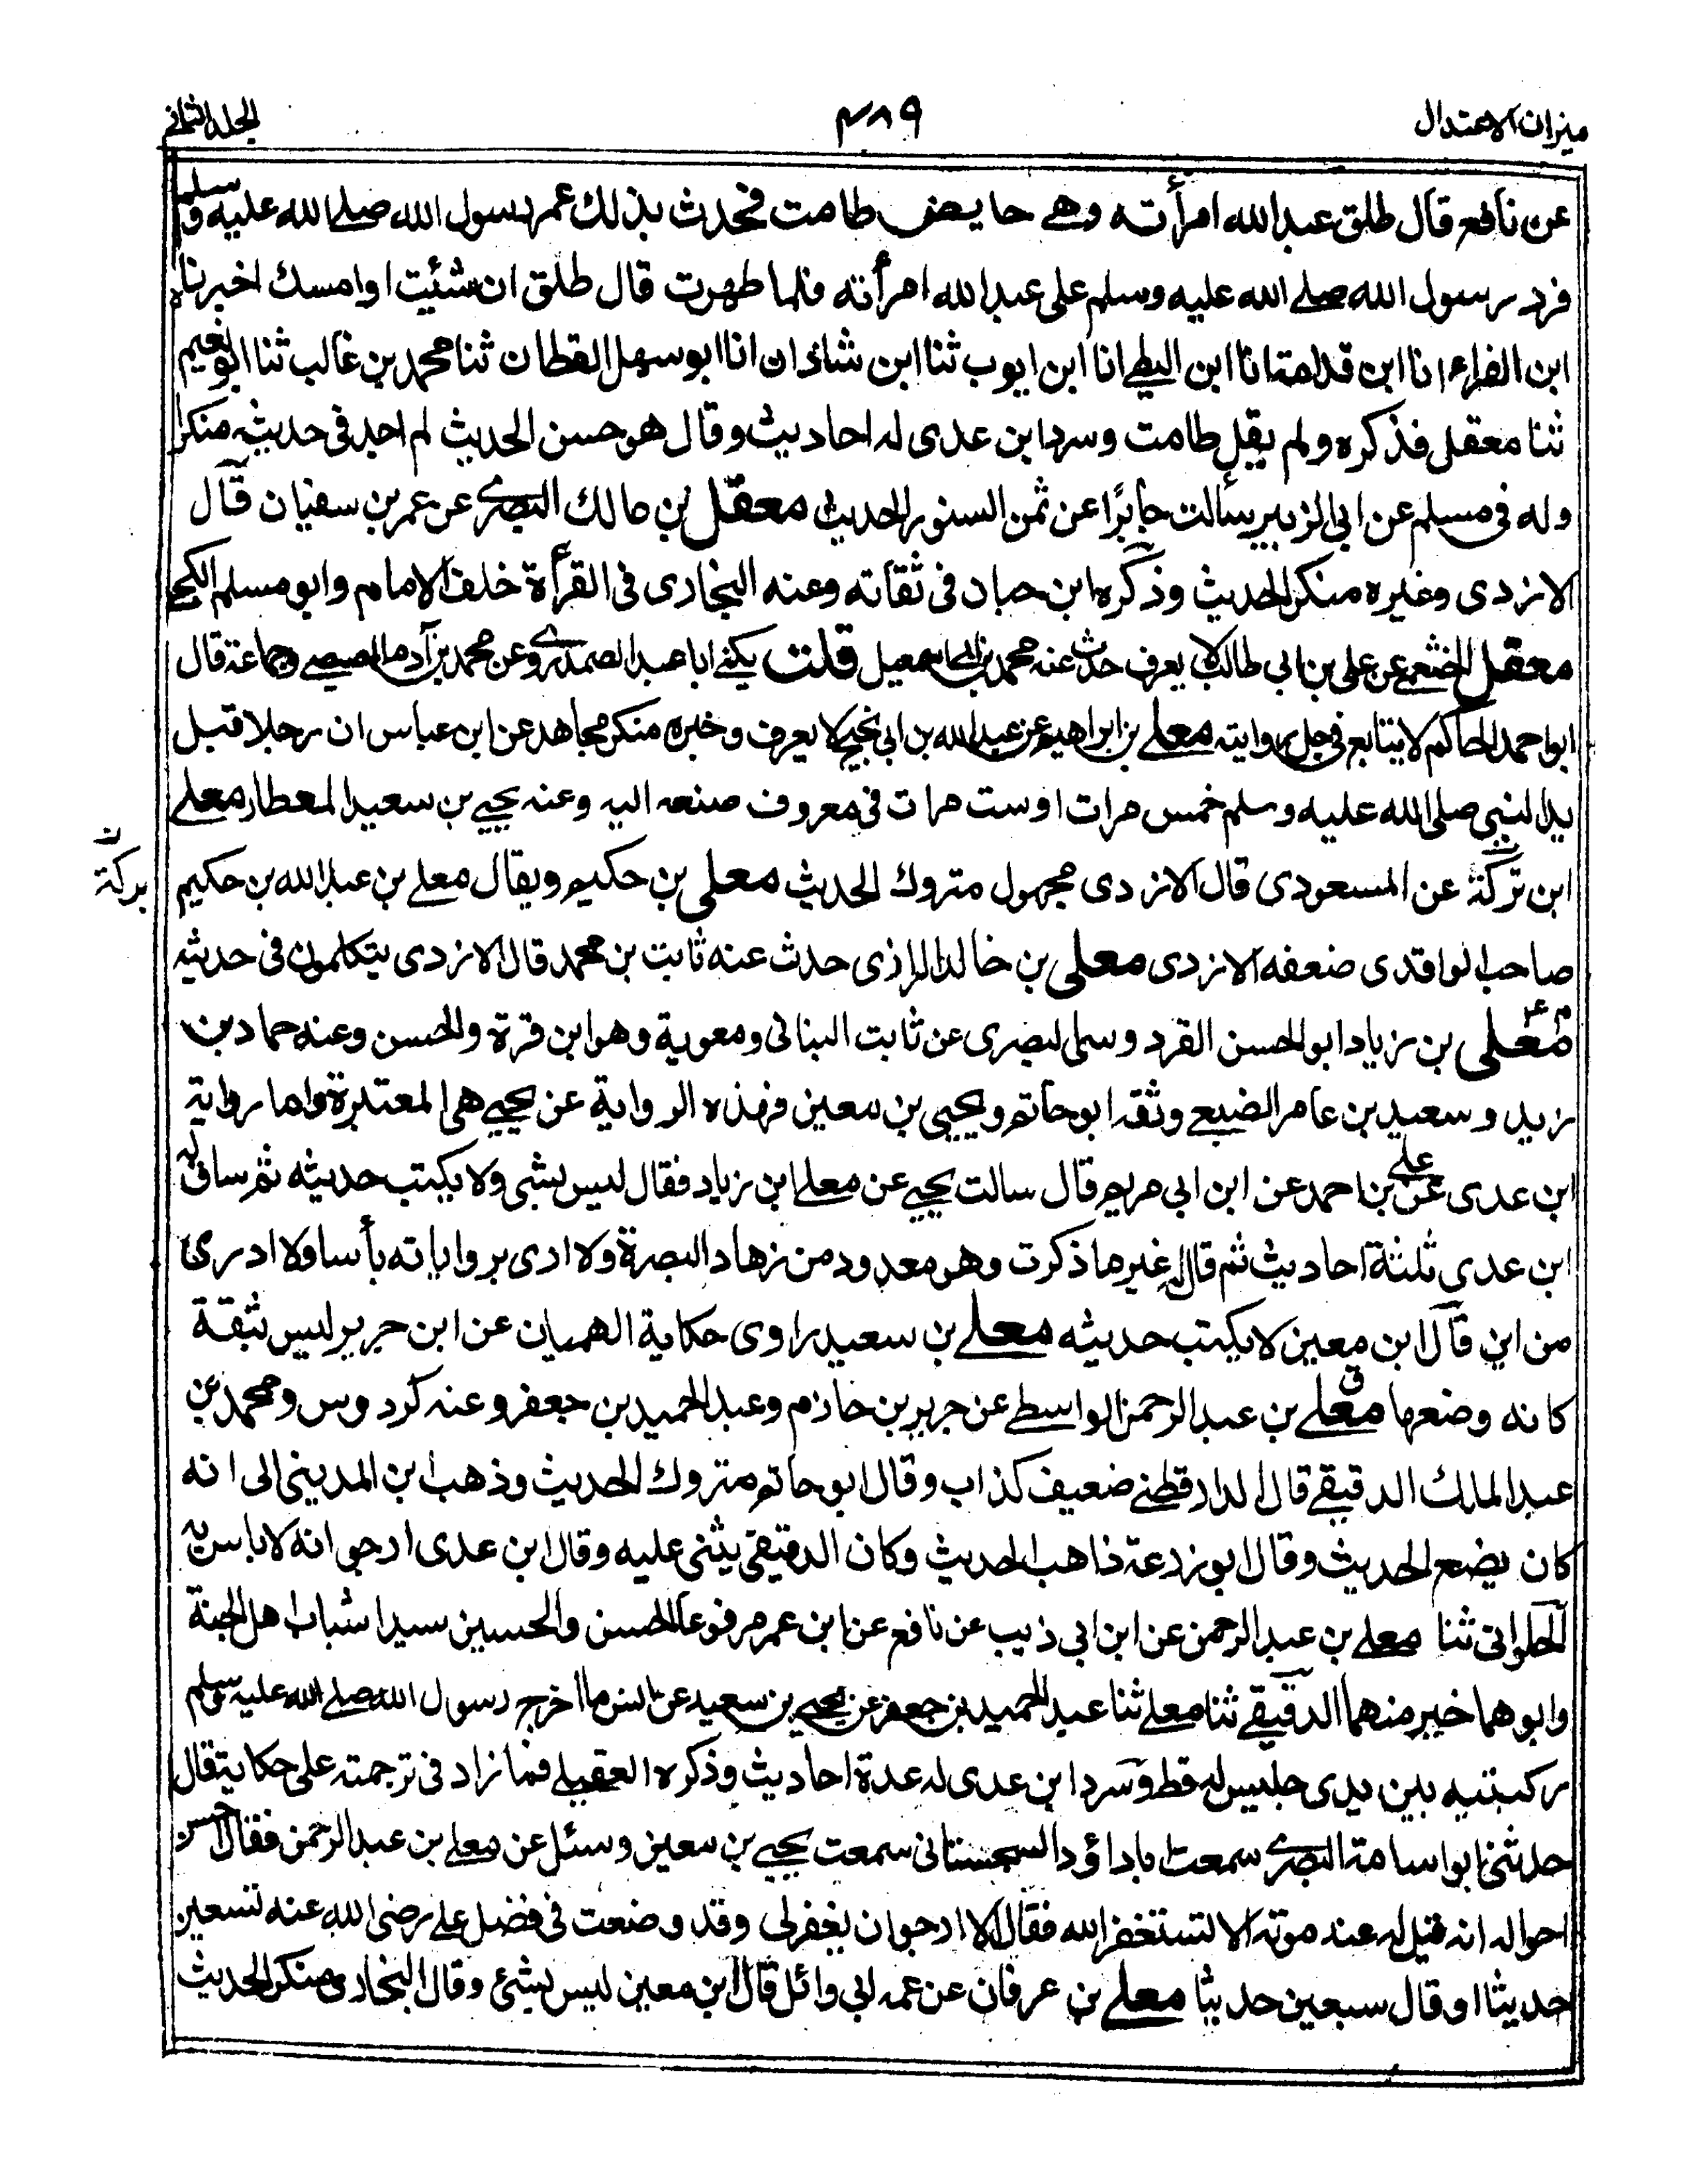 ميزان الاعتدال
٤٨٩
الجلد الثاني
عن نافع قال طلق عبد الله امرأته وهي حايض طامت فحدث بذلك عمر رسول الله صلى الله عليه وسلم
فرد رسول الله صلى الله عليه وسلم على عبد الله امرأته فلما طهرت قال طلق ان شئيت او امسك اخبرناه
ابن الفراء انا ابن قدامة انا ابن البطي انا ابن ايوب ثنا ابن شاذان انا ابو سهل القطان ثنا محمد بن غالب ثنا ابو نعيم
ثنا معقل فذكره ولم يقل طامت وسرد ابن عدى له احاديث وقال هو حسن الحديث لم اجد في حديثه منكرا
وله في مسلم عن ابى الزبير سألت جابرًا عن ثمن السنور الحديث معقل بن مالك البصرى عن عمر بن سفيان قال
الازدى وغيره منكر الحديث وذكره ابن حبان فى ثقاته وعنه البخارى فى القرأة خلف الامام وابو مسلم الكجى
معقل الخثعمى عن على بن ابي طالب لا يعرف حدث عنه محمد بن ابى اسمعيل قلت يكنى ابا عبد الصمد روى عن محمد بن آدم المصيصى وجماعة قال
ابو احمد الحاكم لا يتابع فى جل روايته معلى بن ابراهيم عن عبد الله بن ابى نجيح لا يعرف وخبره منكر مجاهد عن ابن عباس ان رجلا قبل
يد النبي صلى الله عليه وسلم خمس مرات او ست مرات فى معروف صنعه اليه وعنه يحيى بن سعيد العطار معلى
ابن تركة عن المسعودى قال الازدى مجهول متروك الحديث معلى بن حكيم ويقال معلى بن عبد الله بن حكيم
بركة ن
صاحب الواقدى ضعفه الازدى معلى بن خالد الرازى حدث عنه ثابت بن محمد قال الازدى يتكلمون فى حديثه
م عه معلى بن زياد ابو الحسن القرد وسى البصرى عن ثابت البنانى ومعوية وهو ابن قرة والحسن وعنه حماد بن
زيد وسعيد بن عامر الضبعى وثقه ابو حاتم ويحيى بن معين فهذه الرواية عن يحيى هى المعتبرة واما رواية
ابن عدى عن على بن احمد عن ابن ابي مريم قال سالت يحيى عن معلى ابن زياد فقال ليس بشى ولا يكتب حديثه ثم ساق له
ابن عدى ثلثة احاديث ثم قال له غير ما ذكرت وهو معدود من زهاد البصرة ولا ارى برواياته بأسا ولا ادرى
من اين قال ابن معين لا يكتب حديثه معلى بن سعيد راوى حكاية الهميان عن ابن جرير ليس بثقة
كانه وضعها ق معلى بن عبد الرحمن الواسطى عن جرير بن حازم وعبد الحميد بن جعفر وعنه كردوس ومحمد بن
عبد الملك الدقيقى قال الدارقطنى ضعيف كذاب وقال ابو حاتم متروك الحديث وذهب ابن المدينى الى انه
كان يضع الحديث وقال ابو زرعة ذاهب الحديث وكان الدقيقى يثنى عليه وقال ابن عدى ارجو انه لا باس به
الحلوانى ثنا معلى بن عبد الرحمن عن ابن ابى ذيب عن نافع عن ابن عمر مرفوعا الحسن والحسين سيدا شباب اهل الجنة
وابوهما خير منهما الدقيقى ثنا معلى ثنا عبد الحميد بن جعفر عن يحيى بن سعيد عن انس ما اخرج رسول الله صلى الله عليه وسلم
ركبتيه بين يدى جليس له قط وسرد ابن عدى له عدة احاديث وذكره العقيلى فما زاد فى ترجمته على حكاية قال
حدثنى ابو اسامة البصرى سمعت ابا داؤد السجستانى سمعت يحيى بن معين وسئل عن معلى بن عبد الرحمن فقال احسن
احواله انه قيل له عند موته الا تستغفر الله فقال الا ارجو ان يغفر لى وقد وضعت فى فضل على رضى الله عنه تسعين
حديثا او قال سبعين حديثا معلى بن عرفان عن عمه ابى وائل قال ابن معين ليس بشئ وقال البخارى منكر الحديث